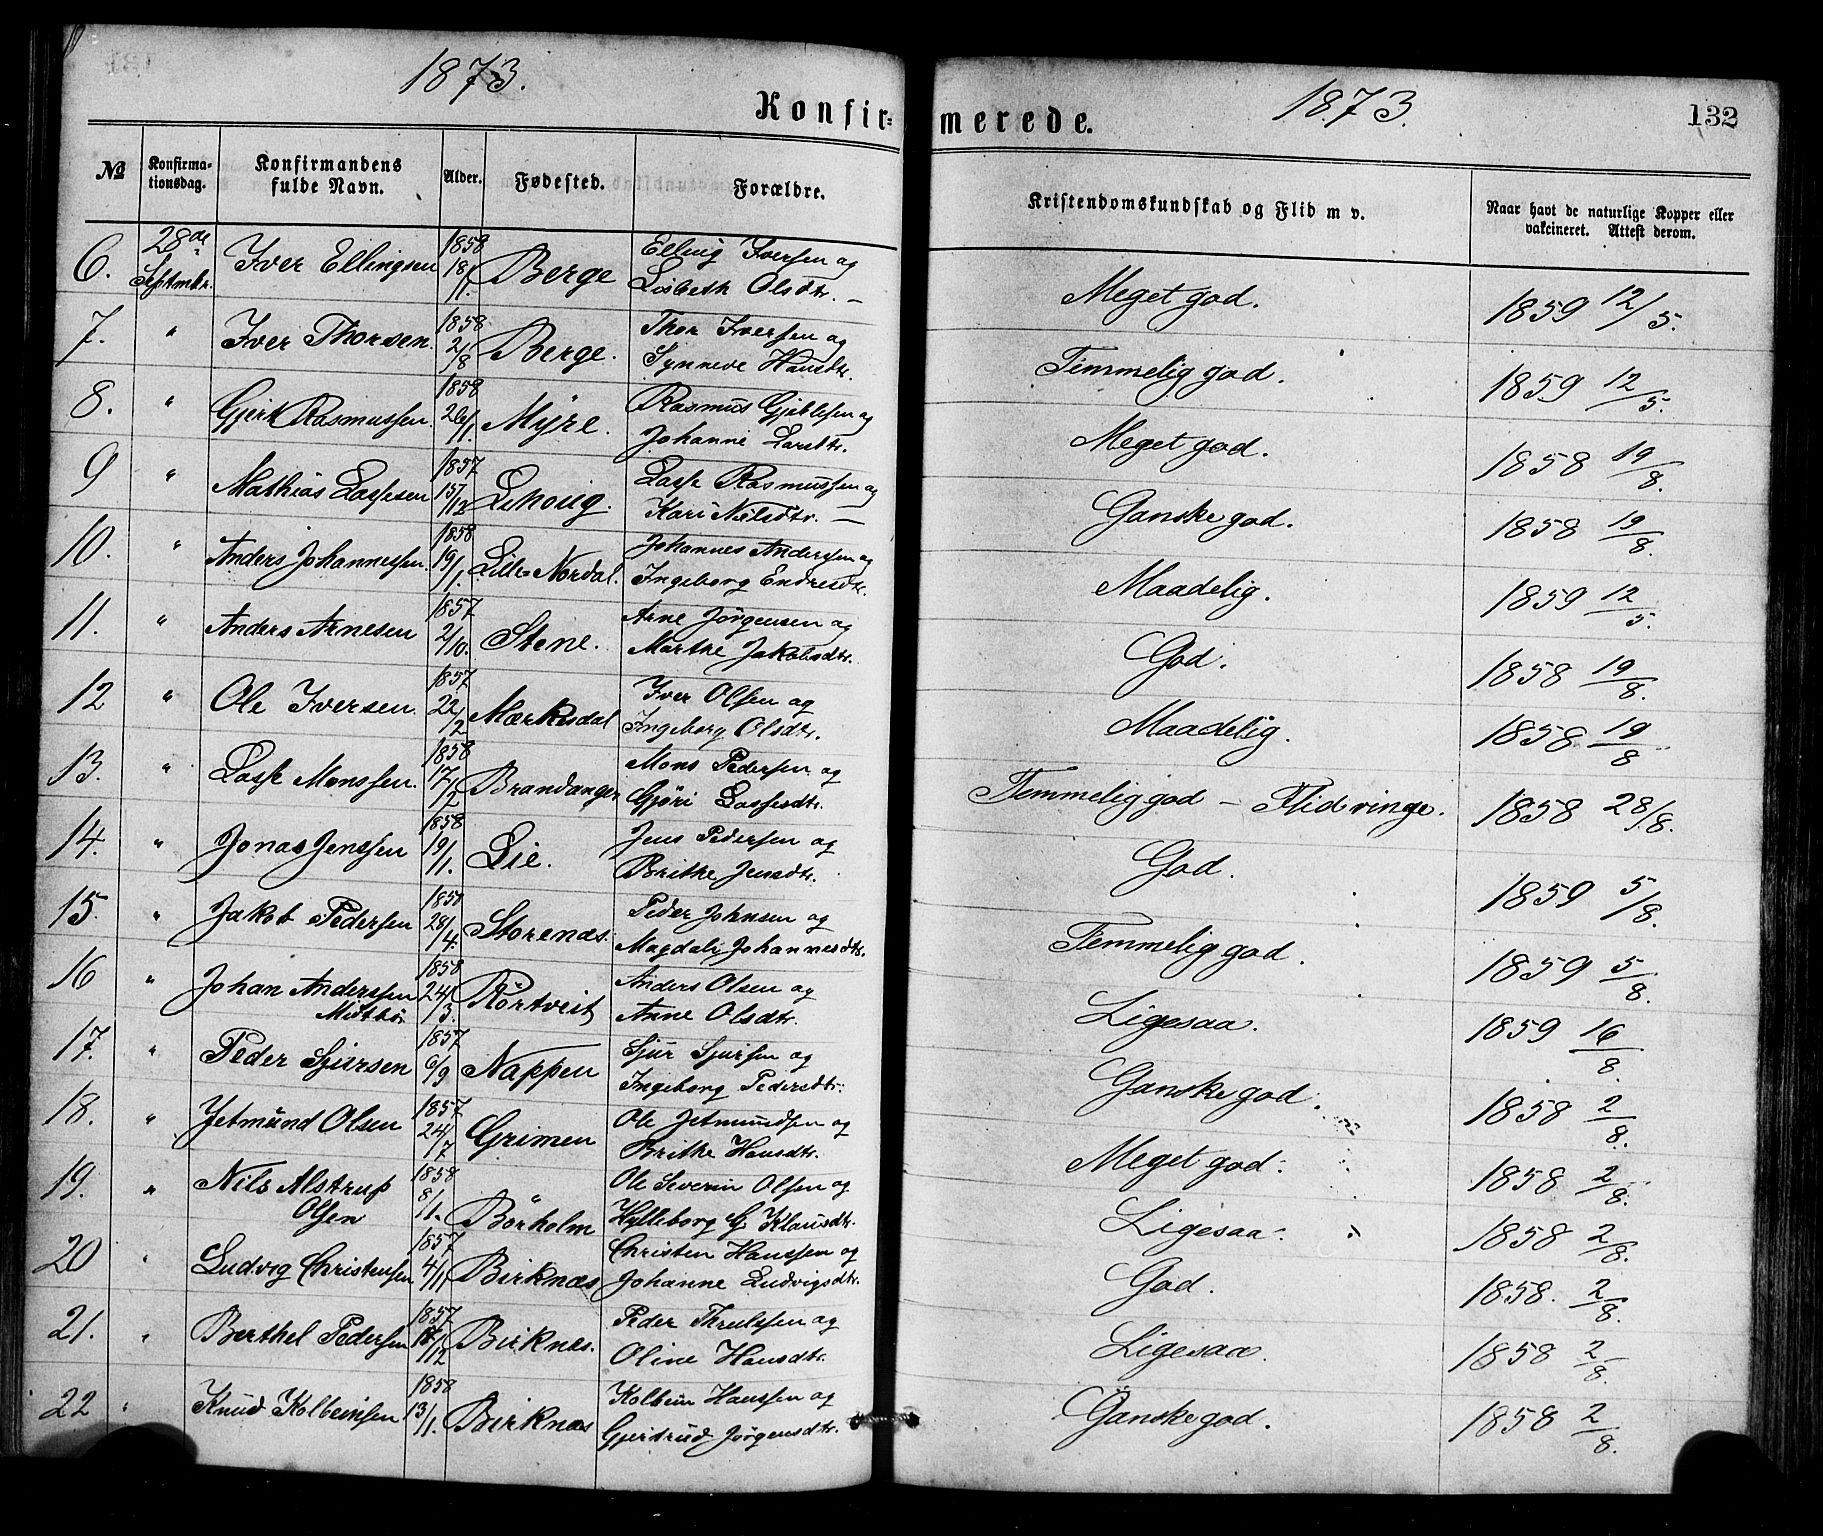 1873.
1873.
132
Konfir=
merede.
№ Konfirma-tionsdag. Konfirmandens fulde Navn. Alder. Fødested. Forældre. Kristendomskundskab og Flid m v. Naar havt de naturlige Kopper eller vakcineret. Attest derom.
6. 28de Septmbr. Iver Ellingsen 1858 18/1. Berge Elling Iversen og Lisbeth Olsdtr. — Meget god. 1859 12/5.
7. " Iver Thorsen. 1858 2/8 Berge. Thor Iversen og Synneve Hansdtr. Temmelig god. 1859 12/5.
8. " Gjert Rasmussen. 1858 26/1. Myre. Rasmus Gjertsen og Johanne Larsdtr. Meget god. 1858 19/8.
9 " Mathias Lassesen 1857 15/12 Lehoug. Lasse Rasmussen og Kari Nilsdtr. — Ganske god. 1858 19/8.
10. " Anders Johannessen. 1858 19/1. Lille=Nordal. Johannes Anderssen og Ingeborg Endresdtr. Maadelig. 1859 12/5.
11. " Anders Arnesen 1857 2/10. Stene. Arne Jørgensen og Marthe Jakobsdtr. God. 1858 19/8.
12 " Ole Iversen. 1857 22/2 Mærkesdal Iver Olsen og Ingeborg Olsdtr. Maadelig. 1858 19/8
13. " Lasse Monssen. 1858 17/2 Brandanger Mons Pedersen og Gjøri Lassesdtr. Temmelig god — Flid ringe. 1858 28/8.
14. " Jonas Jenssen 1858 19/1. Lie. Jens Pedersen og Brithe Jensdtr. God. 1859 5/8.
15. " Jakob Pedersen 1858 28/4. Storenæs. Peder Johnsen og Magdali Johannesdtr. Temmelig god. 1859 5/8.
16 " Johan Anderssen Midtbø. 1858 24/3. Rørtveit Anders Olsen og Anne Olsdtr. Ligesaa. 1859 16/8.
17. " Peder Sjursen 1857 6/9 Nappen Sjur Sjursen og Ingeborg Pedersdtr. Ganske god. 1858 2/8.
18. " Jetmund Olsen 1857 24/7 Grimen Ole Jetmundsen og Brithe Hansdtr. Meget god. 1858 2/8.
19. " Nils Alstrup Olsen 1858 8/1. Börholm Ole Severin Olsen og Hylleborg G. Klausdtr. Ligesaa. 1858 2/8.
20 " Ludvig Christensen 1857 4/11 Birknæs Christen Hanssen og Johanne Ludvigsdtr. God. 1858. 2/8.
21. " Berthel Pedersen 1857 17/12 Birknæs. Peder Thrulssen og Oline Hansdtr. Ligesaa. 1858 2/8.
22 " Knud Kolbeinsen 1858 13/1. Birknæs Kolbein Hanssen og Gjertrud Jørgensdtr. Ganske god. 1858 2/8.